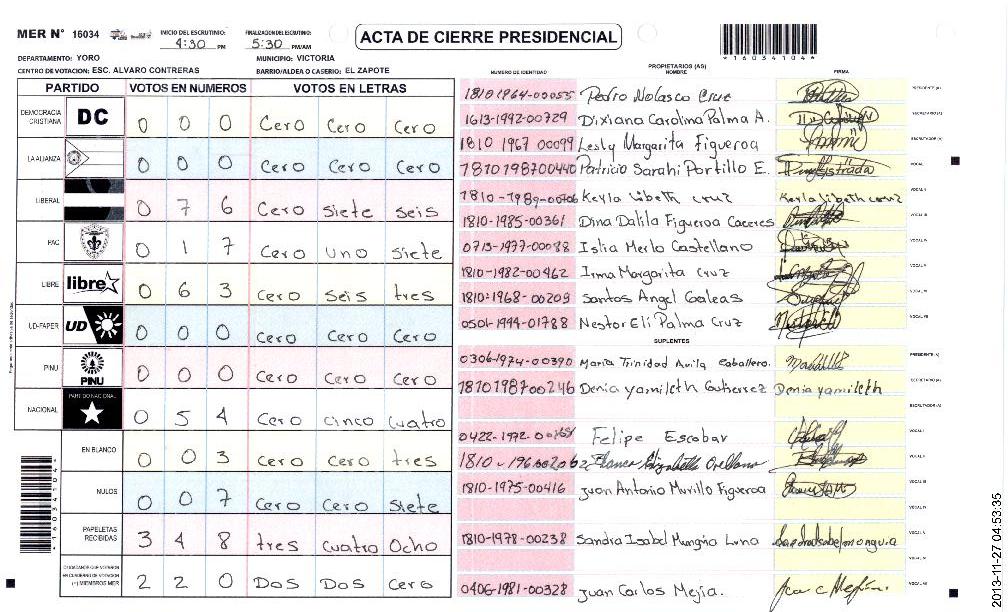 MER N° 16034
INICIO DEL ESCRUTINIO: 4:30 PM
FINALIZACION DEL ESCRUTINIO: 5:30 PM/AM
ACTA DE CIERRE PRESIDENCIAL
*16034104*
DEPARTAMENTO: YORO
MUNICIPIO: VICTORIA
CENTRO DE VOTACION: ESC. ALVARO CONTRERAS
BARRIO/ALDEA O CASERIO: EL ZAPOTE
PARTIDO VOTOS EN NUMEROS VOTOS EN LETRAS
DEMOCRACIA CRISTIANA DC 0 0 0 Cero Cero Cero
LA ALIANZA 0 0 0 Cero Cero Cero
LIBERAL 0 7 6 Cero Siete Seis
PAC 0 1 7 Cero Uno Siete
LIBRE libre 0 6 3 Cero Seis tres
UD-FAPER UD 0 0 0 Cero Cero Cero
PINU PINU 0 0 0 Cero Cero Cero
NACIONAL PARTIDO NACIONAL 0 5 4 Cero Cinco Cuatro
EN BLANCO 0 0 3 Cero Cero tres
NULOS 0 0 7 Cero Cero Siete
PAPELETAS RECIBIDAS 3 4 8 tres Cuatro Ocho
CIUDADANOS QUE VOTARON EN CUADERNO DE VOTACION (+) MIEMBROS MER 2 2 0 Dos Dos Cero
PROPIETARIOS (AS)
NUMERO DE IDENTIDAD NOMBRE FIRMA
1810 1964-00055 Pedro Nolasco Cruz PRESIDENTE (A)
1613-1992-00729 Dixiana Carolina Palma A. SECRETARIO (A)
1810 1967 00099 Lesly Margarita Figueroa ESCRUTADOR (A)
1810198700440 Patricio Sarahi Portillo E. VOCAL I
1810-1989-00706 Keyla Libeth cruz Keyla libeth cruz VOCAL II
1810-1985-00361 Dina Dalila Figueroa Caceres VOCAL III
0713-1977-00088 Islia Merlo Castellano VOCAL IV
1810-1982-00462 Irma Margarita Cruz VOCAL V
1810-1968-00209 Santos Angel Galeas VOCAL VI
0501-1994-01788 Nestor Eli Palma Cruz VOCAL VII
SUPLENTES
0306-1974-00390 Maria Trinidad Avila Caballero. PRESIDENTE (A)
1810198700246 Denia yamileth Gutierrez Denia yamileth SECRETARIO (A)
ESCRUTADOR (A)
0422-1972- Felipe Escobar VOCAL I
1810 Blanca Elizabeth Orellana VOCAL II
1810-1975-00416 Juan Antonio Murillo Figueroa VOCAL III
1810-1978-00238 Sandra Isabel Munguia Luna VOCAL V
VOCAL VI
0406-1981-00328 Juan Carlos Mejia. VOCAL VII
2013-11-27 04:53:35